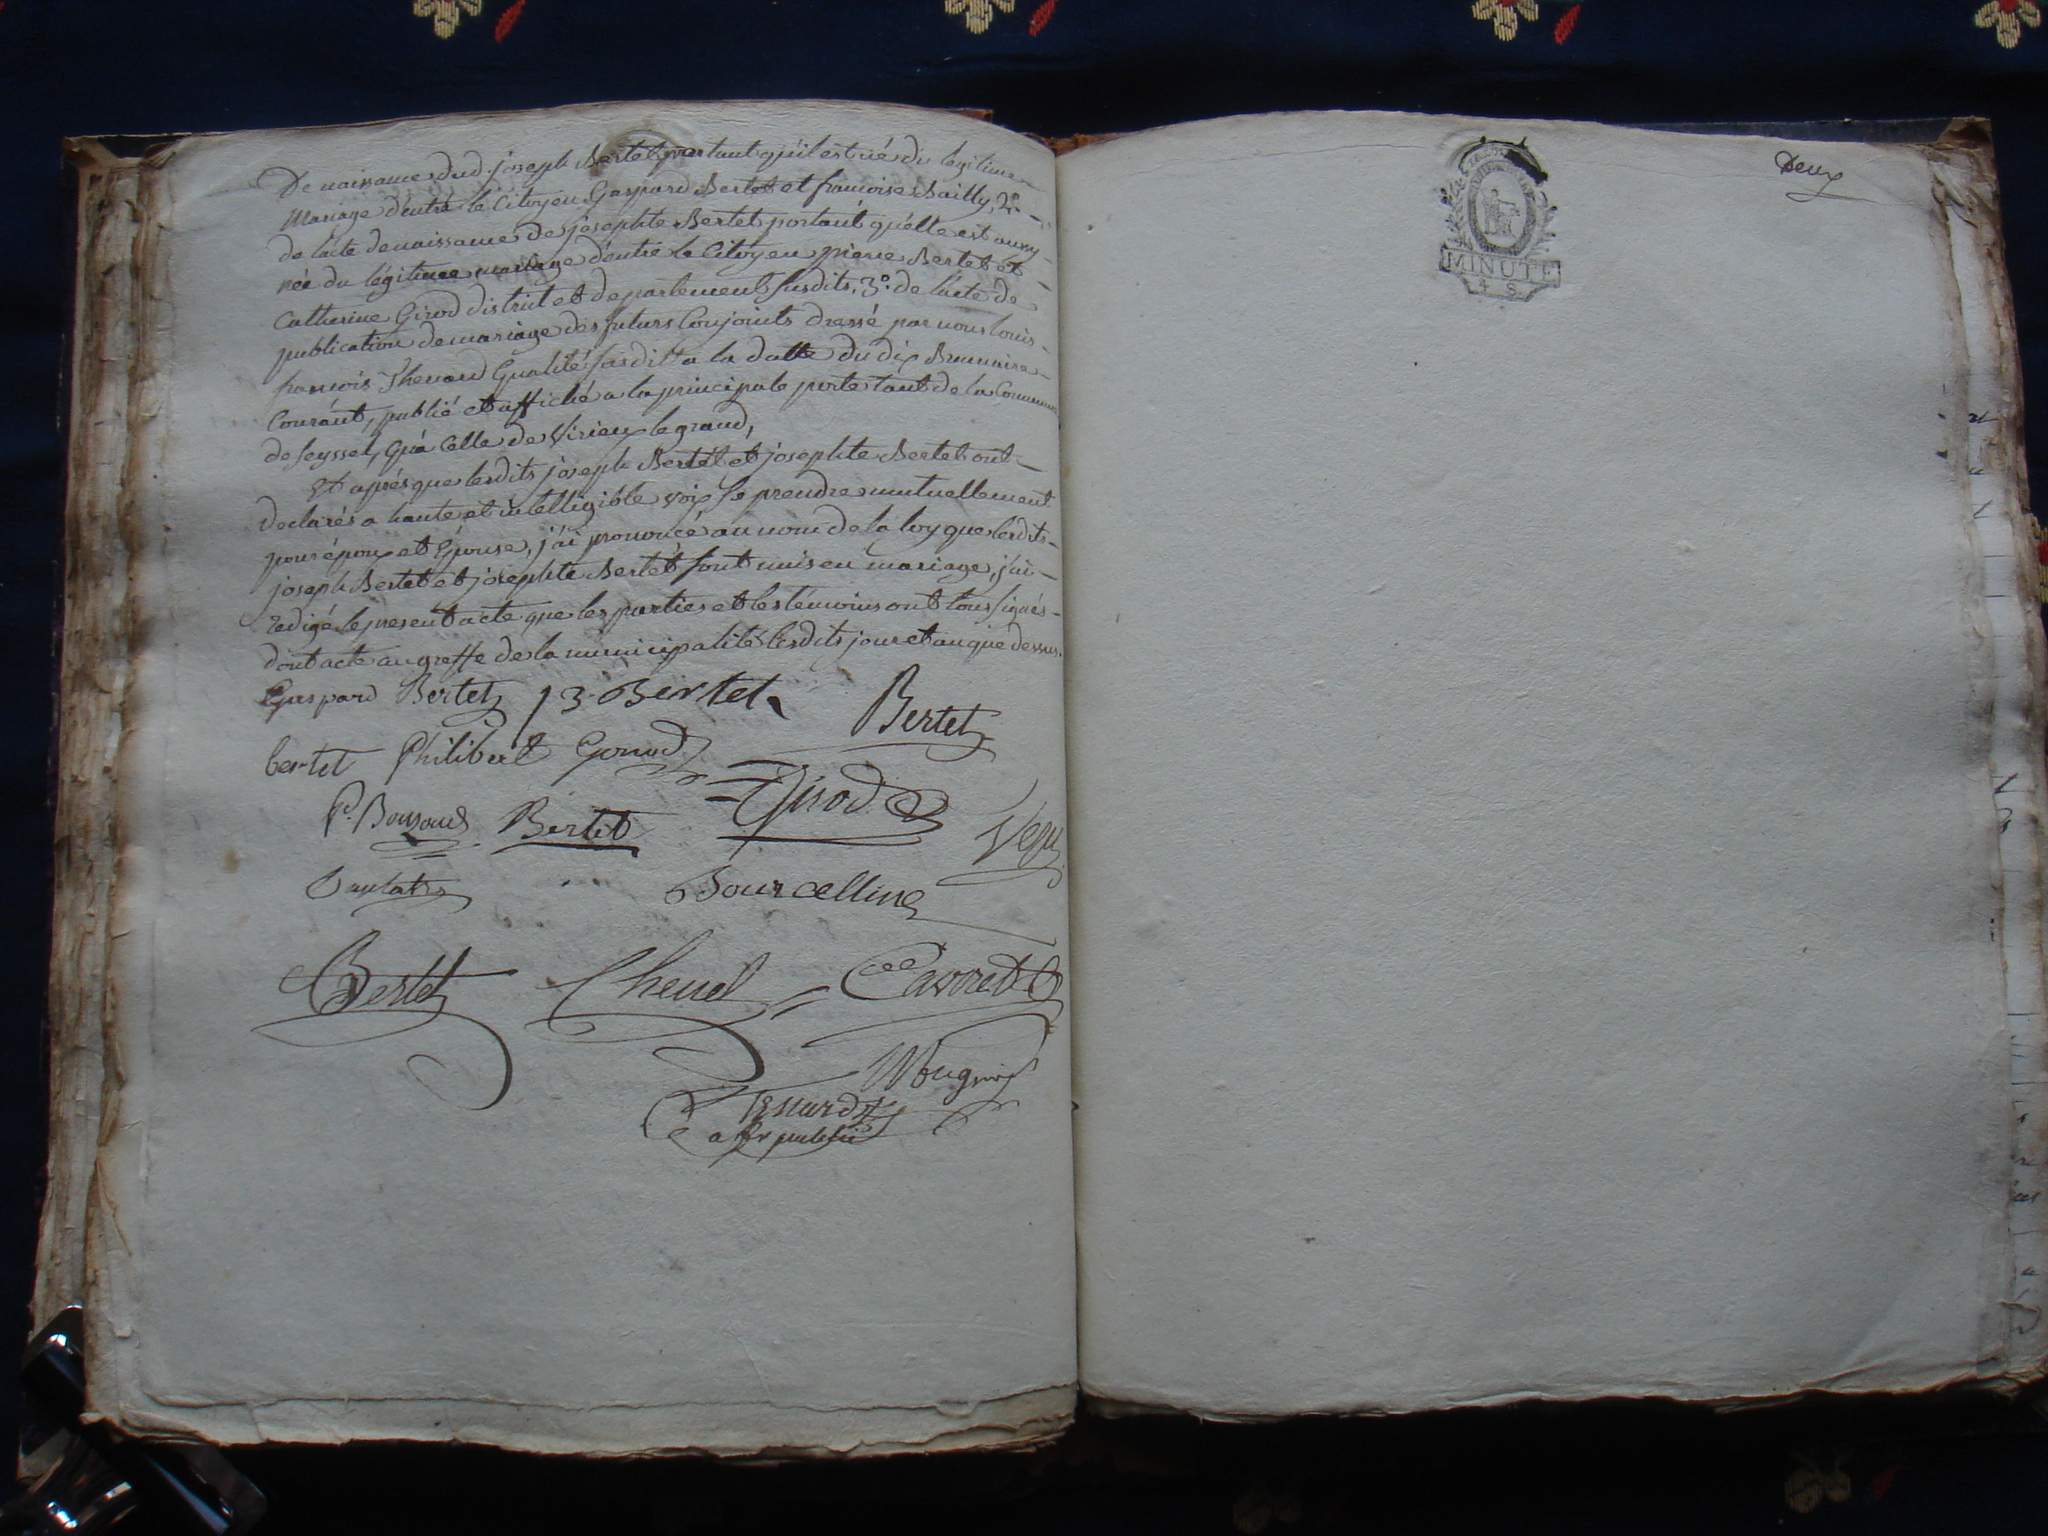 De naissance dud. joseph Bertet portant qu'il est né du legitime
Mariage d'entre le Citoyen Gaspard Bertet et francoise Bailly, 2°.
de l'acte de naissance de josephte Bertet portant qu'elle est aussy
née du légitime mariage d'entre le Citoyen pierre Bertet et
Catherine Girod district et departement susdits, 3°. de l'acte de
publication de mariage des futurs Conjoints dressé par nous louis
francois Thenard Qualité susdit a la datte du dix Brumaire
Courant, publié et affiché a la principale porte tant de la Commune
de seyssel, Qu'a Celle de Virieu le grand,
Et aprés que lesdits joseph Bertet et josephte Bertet ont
declarés a haute et intelligible voix se prendre mutuellement
pour époux et Epouse, j'ai prononcé au nom de la loy que lesdits
joseph Bertet et josephte Bertet sont unis en mariage, j'ai
redigé le present acte que les parties et les témoins ont tous signés
dont acte au greffe de la municipalité lesdits jour et an que dessus.
Gaspard Bertet J B Bertet Bertet
bertet Philibert Gonod
Girod
Bertet
Bourcellin
Bertet Chenel Cavoret
off publi
Deux
MINUTE
4 S